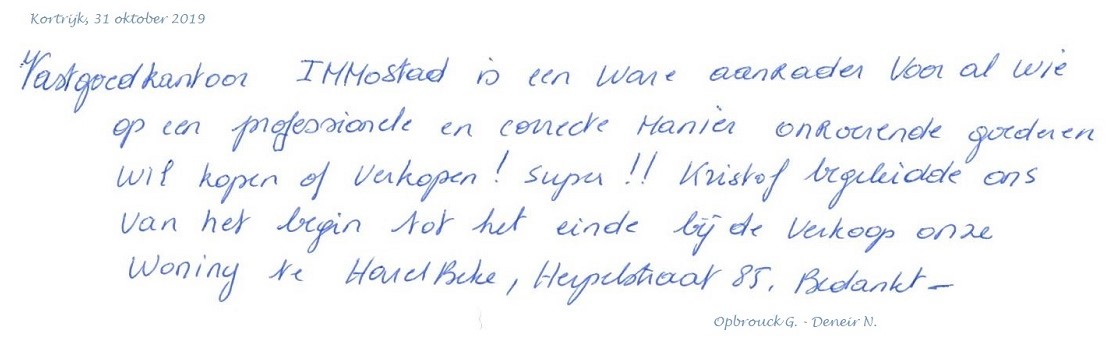 Kortrijk, 31 oktober 2019
Vastgoedkantoor IMMostad is een ware aanrader voor al wie
op een professionele en correcte Manier onroerende goederen
wil kopen of verkopen! Super!! Kristof begeleidde ons
van het begin tot het einde bij de verkoop onze
woning te HarelBeke, Herpelstraat 85. Bedankt -
Opbrouck G. - Deneir N.